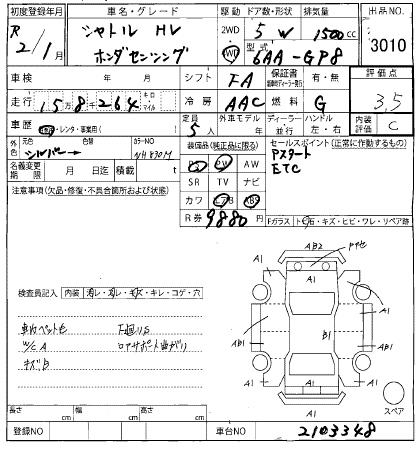 初度登録年月 車名・グレード 駆動 ドア数・形状 排気量 出品NO.
R 2/1 シャトル HV ホンダセンシング 2WD 4WD 5 W 1500cc 3010
型式 6AA-GP8
車検 年 月 シフト FA 保証書 有・無 評価点
走行 15万8千264 キロ マイル 冷房 AAC 燃料 G 3.5
車歴 自家・レンタ・事業用( ) 定員 5人 外車モデル 年 ディーラー・並行 ハンドル 左・右 内装評価 C
外色 元色 シルバー 色替 カラーNO NH830M 装備品(純正品に限る) セールスポイント(正常に作動するもの)
PS PW AW Pスタート
名義変更期限 月 日迄 積載 t SR TV ナビ ETC
注意事項(欠品・修復・不具合箇所および状態) カワ エアB ABS
R券 9880円 Fガラス トビ石・キズ・ヒビ・ワレ・リペア跡
AB2
A1 A1
検査員記入 内装 汚レ・スレ・キズ・キレ・コゲ・穴
A1 A1
車内ペット毛 下廻りS AB1 B1 AB1
W/C A コアサポート曲がり
キズ B A1 A1
A1 スペア
長さ cm 幅 cm 高さ cm A1
登録NO 車台NO 2103348